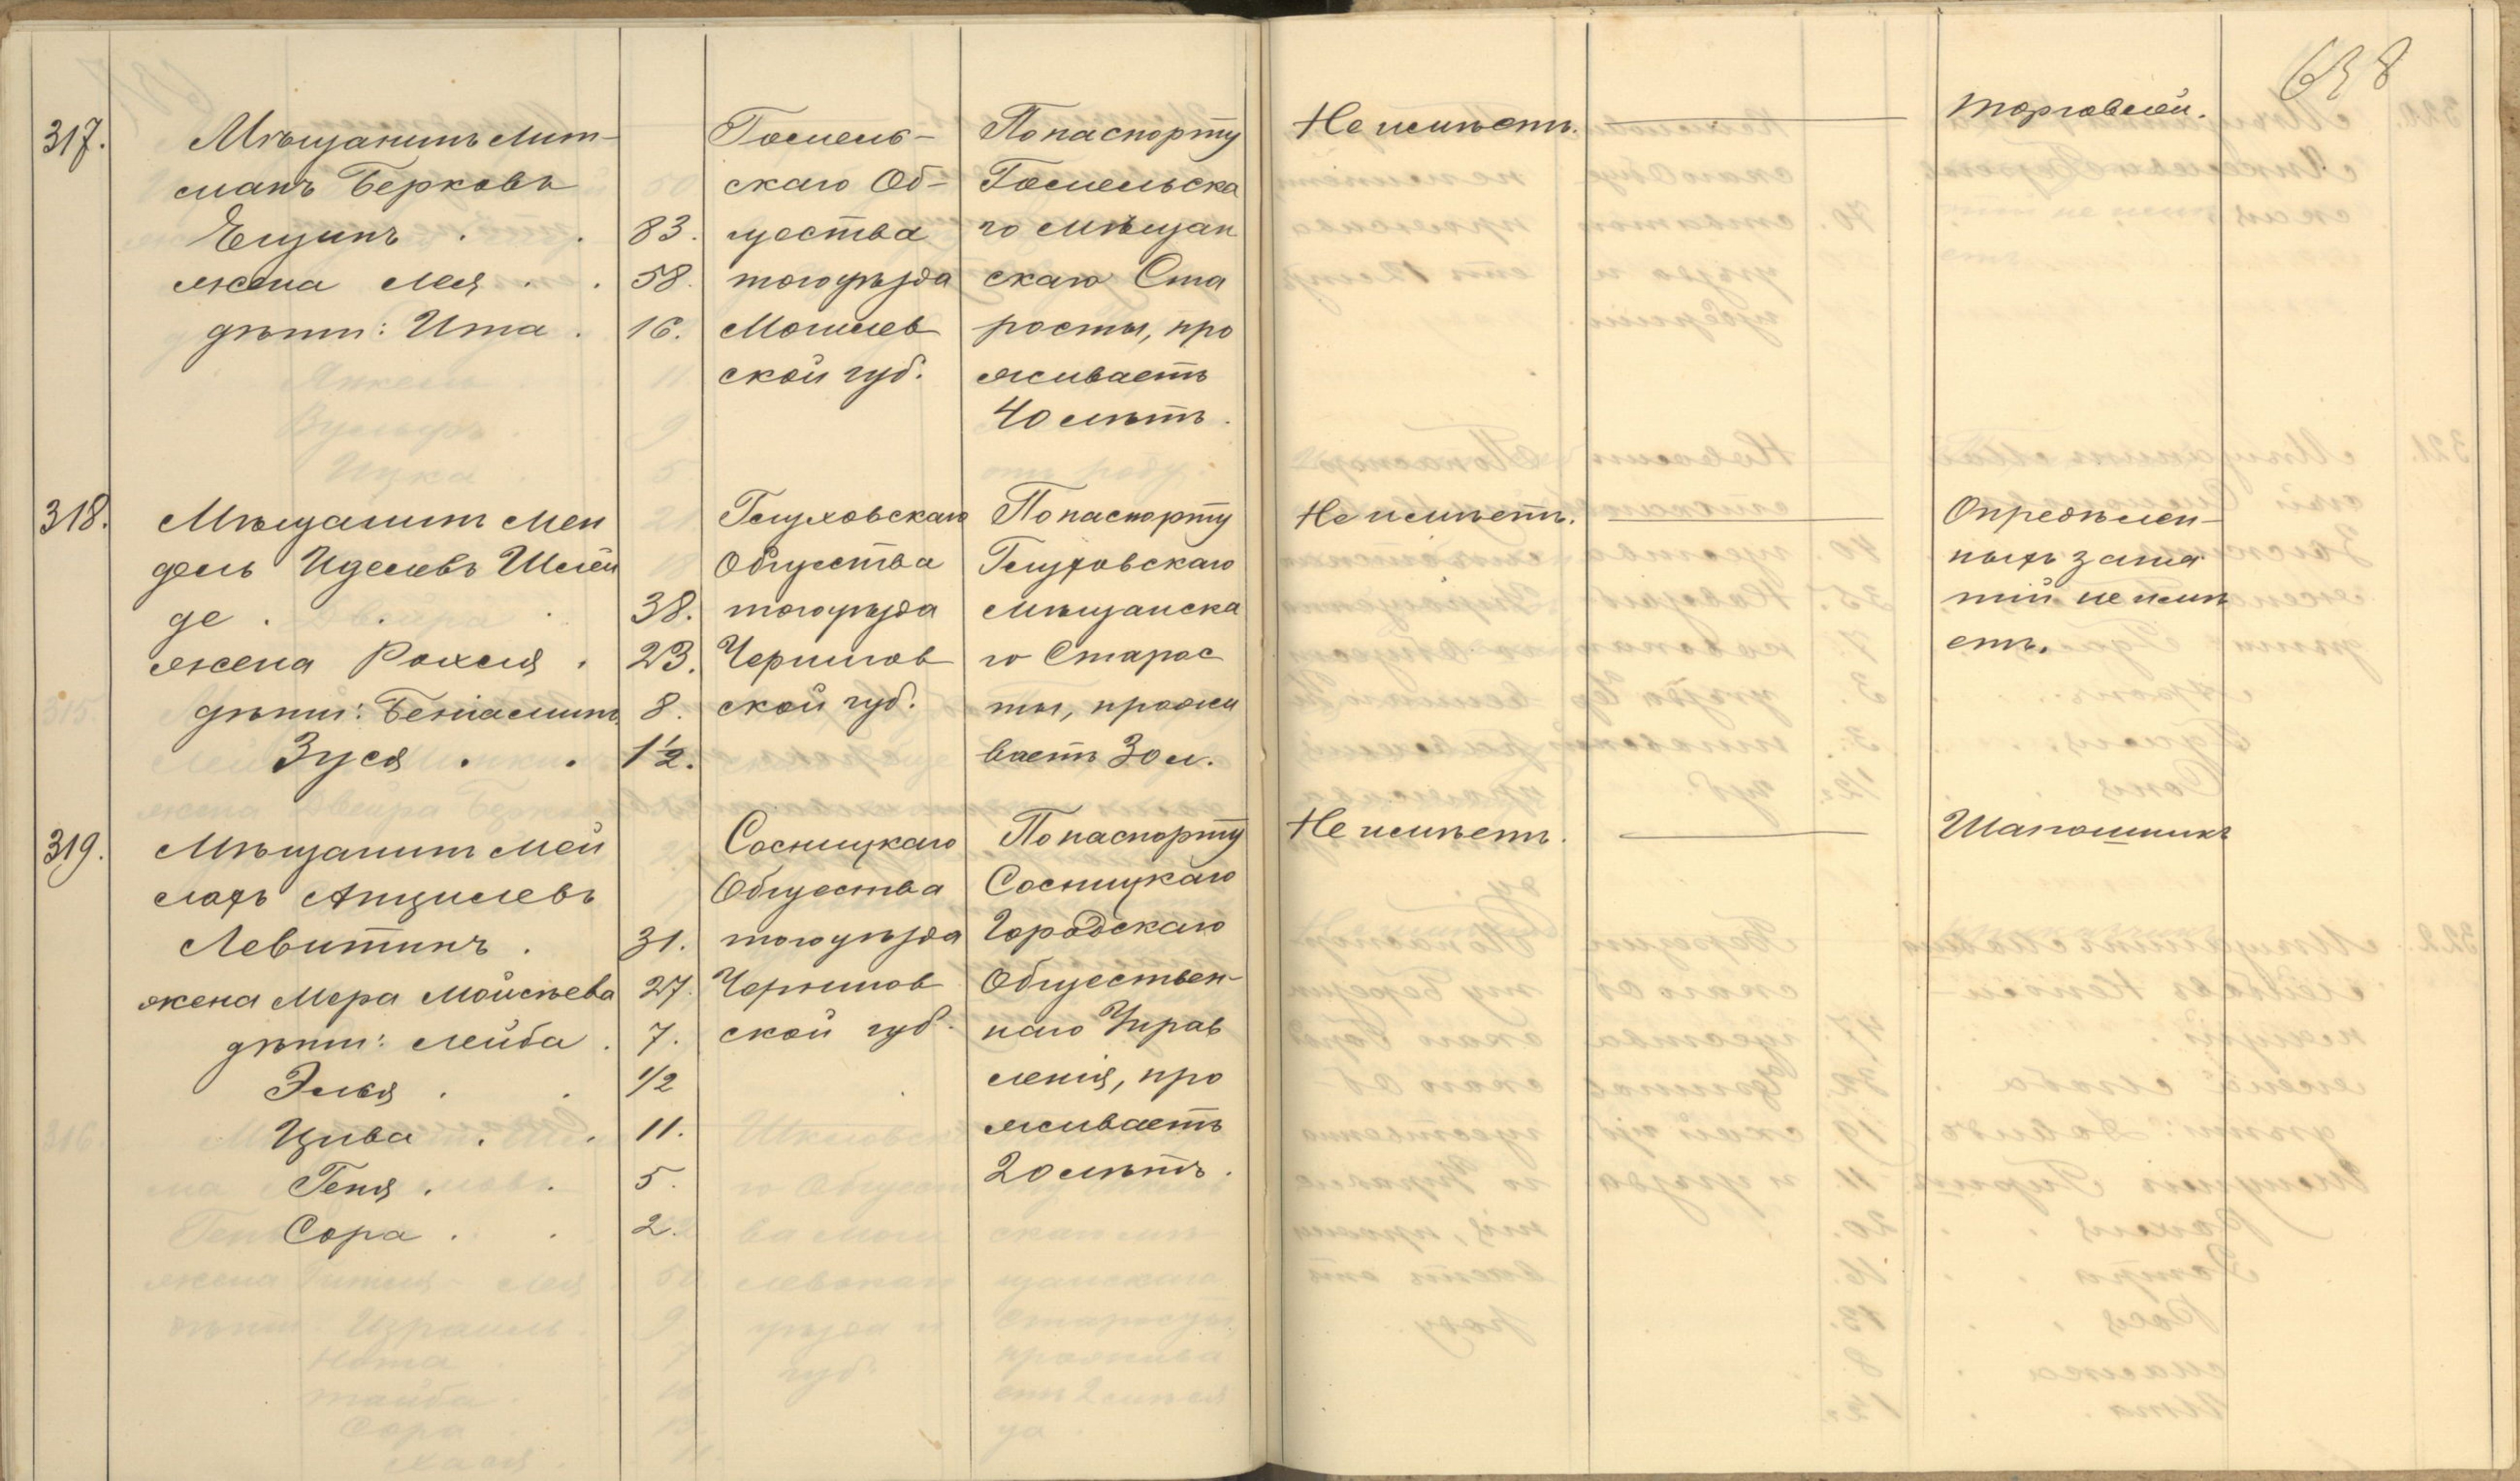 638
317.
Мѣщанинъ Лит-
манъ Берковъ
Ещинъ . . 83.
жена Лея . . 58.
дѣти: Ита . 16.
Гомель-
скаго Об-
щества
того уѣзда
Могилев
ской губ.
По паспорту
Гомельска
го Мѣщан
скаго Ста
росты, про
живаетъ
40 лѣтъ.
Не имѣетъ.
Торговлей.
318.
Мѣщанинъ Мен
дель Иделевъ
де . . . 38.
жена Рохля . 23.
дѣти: Беніаминъ 8.
Зуся . . 1½.
Глуховскаго
Общества
того уѣзда
Чернигов
ской губ.
По паспорту
Глуховскаго
Мѣщанска
го Старос
ты, прожи
ваетъ 30 л.
Не имѣетъ.
Опредѣлен-
ныхъ заня
тій не имѣ
етъ.
319.
Мѣщанинъ Мей
лахъ Анцилевъ
Левитинъ . 31.
жена Мера Мойсѣева 27.
дѣти: Лейба . 7.
Элья . . ½
Цива . . 11.
Геня . . 5.
Сора . . 2.
Сосницкаго
Общества
того уѣзда
Чернигов
ской губ.
По паспорту
Сосницкаго
Городскаго
Обществен-
наго Управ
ленія, про
живаетъ
20 лѣтъ.
Не имѣетъ.
Шапошникъ